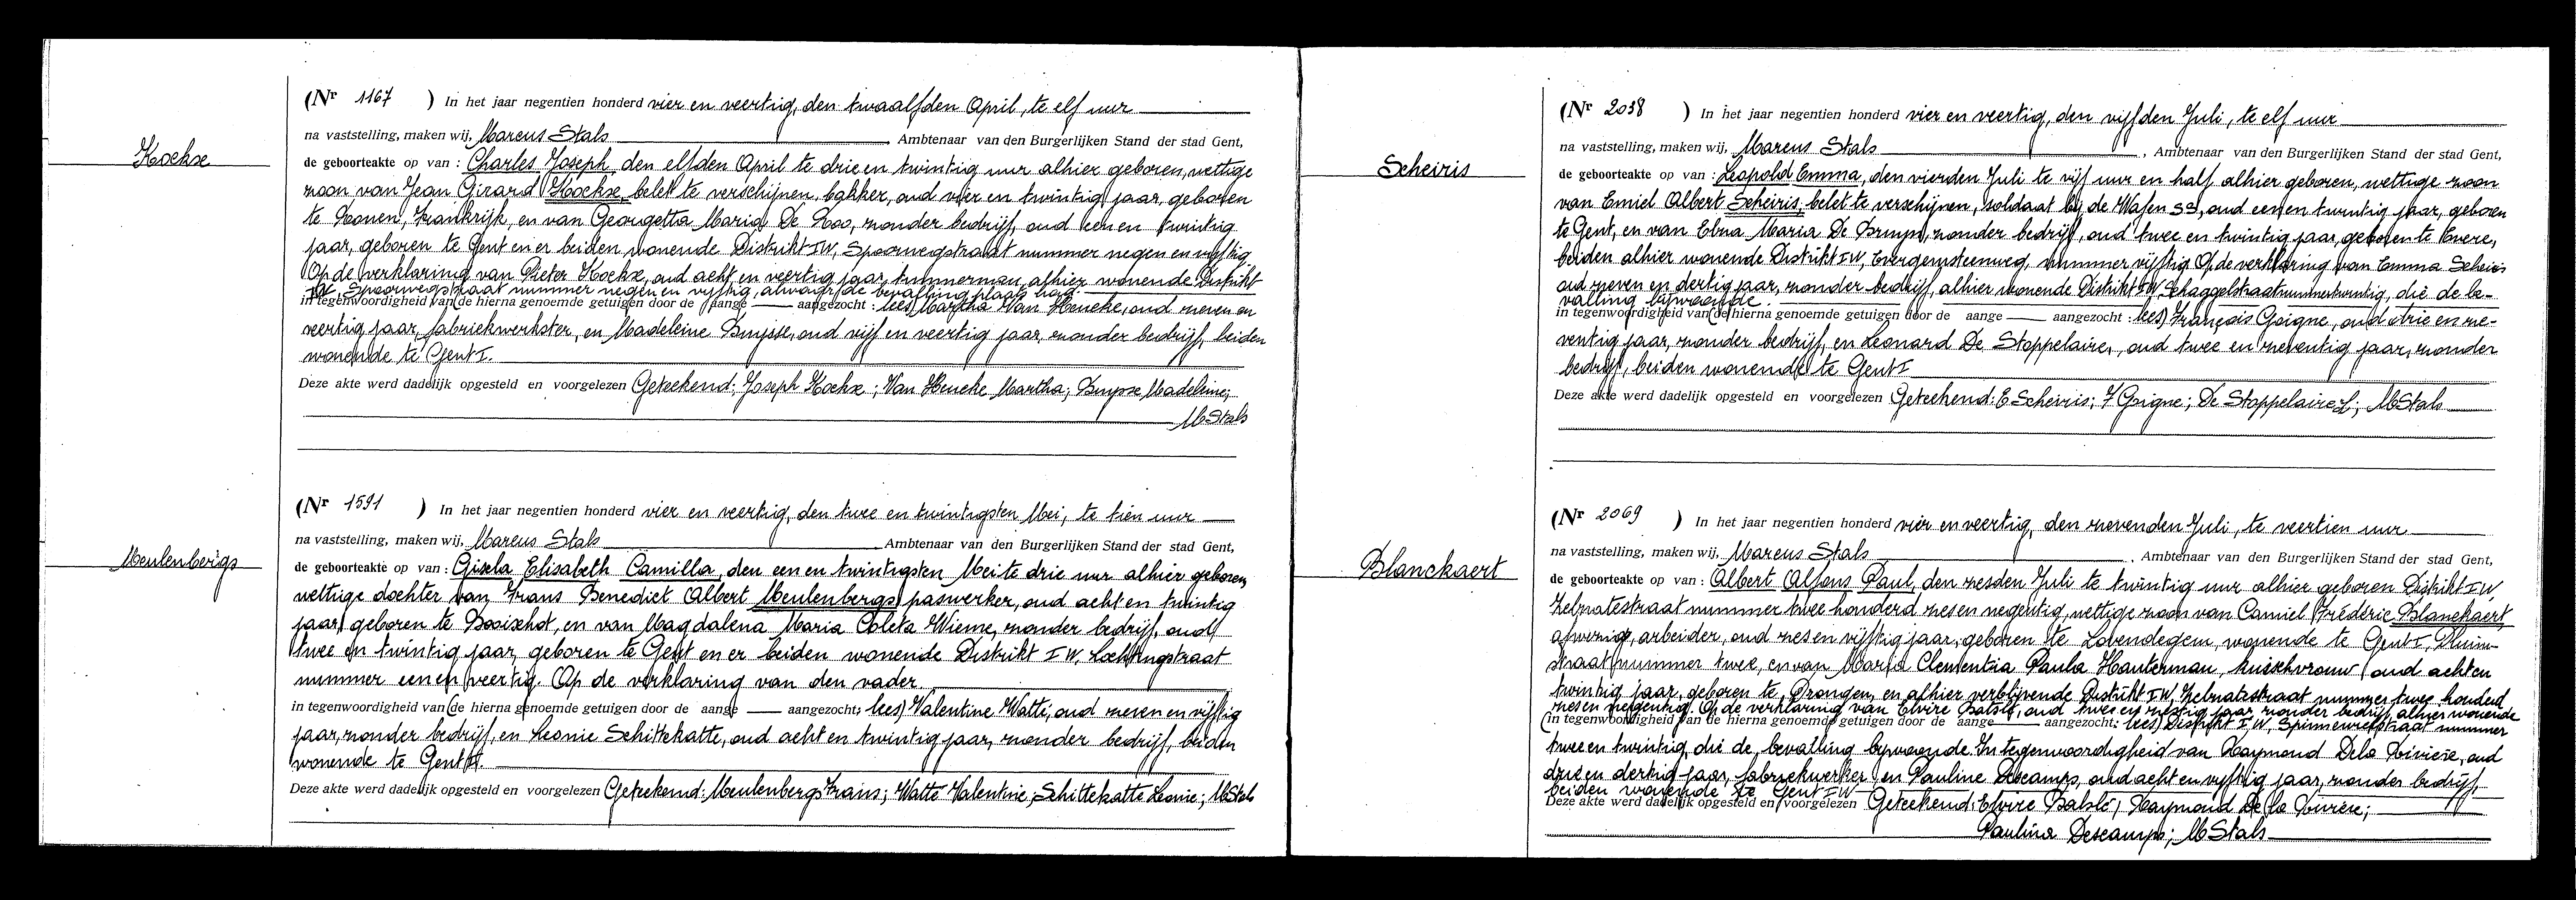 Hoekse
(Nr 1167 ) In het jaar negentien honderd vier en veertig, den twaalfden April, te elf uur
na vaststelling, maken wij, Marcus Stals Ambtenaar van den Burgerlijken Stand der stad Gent,
de geboorteakte op van : Charles Joseph, den elfden April te drie en twintig uur alhier geboren, wettige
zoon van Jean Girard Hoekse, belet te verschijnen, bakker, oud vier en twintig jaar, geboren
te Rouen, Frankrijk, en van Georgetta Maria De Roo, zonder bedrijf, oud een en twintig
jaar, geboren te Gent en er beiden wonende Distrikt IW, Spoorwegstraat nummer negen en vijftig.
Op de verklaring van Pieter Hoekse, oud acht en veertig jaar, timmerman, alhier wonende Distrikt
IW, Spoorwegstraat nummer negen en vijftig, alwaar de bevalling plaats had.
in tegenwoordigheid van (de hierna genoemde getuigen door de aange aangezocht : lees) Martha Van Heueke, oud zeven en
veertig jaar, fabriekwerkster, en Madeleine Buysse, oud vijf en veertig jaar, zonder bedrijf, beiden
wonende te Gent I.
Deze akte werd dadelijk opgesteld en voorgelezen Geteekend: Joseph Hoekse; Van Heueke Martha; Buysse Madeleine;
M Stals
Meulenbergs
(Nr 1591 ) In het jaar negentien honderd vier en veertig, den twee en twintigsten Mei, te tien uur
na vaststelling, maken wij, Marcus Stals Ambtenaar van den Burgerlijken Stand der stad Gent,
de geboorteakte op van : Gisela Elisabeth Camilla, den een en twintigsten Mei te drie uur alhier geboren,
wettige dochter van Frans Benedict Albert Meulenbergs, paswerker, oud acht en twintig
jaar, geboren te Booischot, en van Magdalena Maria Coleta Wieme, zonder bedrijf, oud
twee en twintig jaar, geboren te Gent en er beiden wonende Distrikt IW, Lochtingstraat
nummer een en veertig. Op de verklaring van den vader.
in tegenwoordigheid van (de hierna genoemde getuigen door de aange aangezocht; lees) Valentine Watte, oud zeven en vijftig
jaar, zonder bedrijf, en Leonie Schittekatte, oud acht en twintig jaar, zonder bedrijf, beiden
wonende te Gent
Deze akte werd dadelijk opgesteld en voorgelezen Geteekend: Meulenbergs Frans; Watte Valentine; Schittekatte Leonie; M Stals
Scheiris
(Nr 2038 ) In het jaar negentien honderd vier en veertig, den vijfden Juli, te elf uur
na vaststelling, maken wij, Marcus Stals , Ambtenaar van den Burgerlijken Stand der stad Gent,
de geboorteakte op van : Leopold Emma, den vierden Juli te vijf uur en half alhier geboren, wettige zoon
van Emiel Albert Scheiris, belet te verschijnen, soldaat bij de Wafen SS, oud een en twintig jaar, geboren
te Gent, en van Elna Maria De Bruyn, zonder bedrijf, oud twee en twintig jaar, geboren te Evere,
beiden alhier wonende Distrikt IW, Evergemsteenweg, nummer vijftig. Op de verklaring van Emma Scheiris
oud zeven en dertig jaar, zonder bedrijf, alhier wonende Distrikt IW, nummer twintig, die de be-
valling bijwoonde.
in tegenwoordigheid van (de hierna genoemde getuigen door de aange aangezocht : lees) François Goigne, oud drie en ze-
ventig jaar, zonder bedrijf, en Leonard De Stoppelaire, oud twee en zeventig jaar, zonder
bedrijf, beiden wonende te Gent I
Deze akte werd dadelijk opgesteld en voorgelezen Geteekend: E Scheiris; F Goigne; De Stoppelaire L; M Stals
Blanckaert
(Nr 2069 ) In het jaar negentien honderd vier en veertig, den zevenden Juli, te veertien uur
na vaststelling, maken wij, Marcus Stals , Ambtenaar van den Burgerlijken Stand der stad Gent,
de geboorteakte op van : Albert Alfons Paul, den zesden Juli te twintig uur alhier geboren Distrikt IW,
Zelzatestraat nummer twee honderd zes en negentig, wettige zoon van Camiel Fréderic Blanckaert,
afwezig, arbeider, oud zes en vijftig jaar, geboren te Lovendegem, wonende te Gent I, Pluim-
straat nummer twee, en van Maria Clementia Paula Hauterman, kuischvrouw, oud acht en
twintig jaar, geboren te Drongen, en alhier verblijvende Distrikt IW, Zelzatestraat nummer twee honderd
zes en negentig. Op de verklaring van Elvire Batslé, oud twee en zestig jaar, zonder bedrijf, alhier wonende
(in tegenwoordigheid van de hierna genoemde getuigen door de aange aangezocht; lees) Distrikt IW, Spinnerijstraat nummer
twee en twintig, die de bevalling bijwoonde. In tegenwoordigheid van Raymond Dela Rivière, oud
drie en dertig jaar, fabriekwerker en Pauline Descamps, oud acht en vijftig jaar, zonder bedrijf,
beiden wonende te Gent IW
Deze akte werd dadelijk opgesteld en voorgelezen Geteekend: Elvire Batslé; Raymond De la Rivière;
Paulina Descamps; M Stals